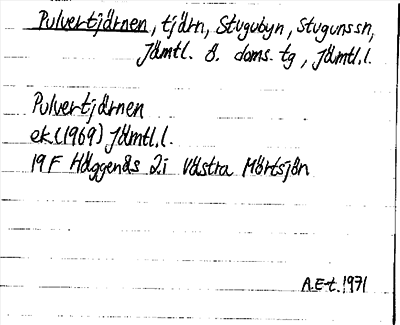 Pulvertjärnen, tjärn, Stugubyn, Stugunssn,
Jämtl. ö. doms. tg, Jämtl.l.
Pulvertjärnen
ek.(1969) Jämtl.l.
19F Häggenås 2i Västra Mörtsjön
A.E-t. 1971